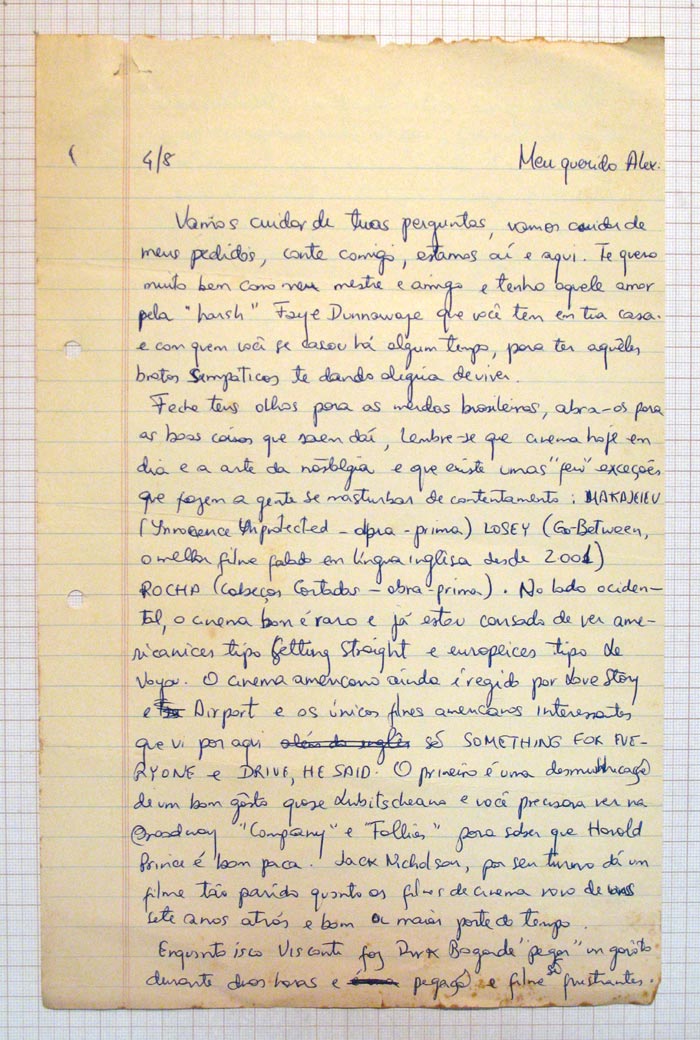 4/8 Meu querido Alex.
Vamos cuidar de tuas perguntas, vamos cuidar de
meus pedidos, conte comigo, estamos aí e aqui. Te quero
muito bem como meu mestre e amigo e tenho aquele amor
pela "harsh" Faye Dunnaway que você tem em tua casa
e com quem você se casou há algum tempo, para ter aquêles
brotos simpaticos te dando alegria de viver.
Feche teus olhos para as merdas brasileiras, abra-os para
as boas coisas que saem daí, lembre-se que cinema hoje em
dia e a arte da nostolgia e que existe umas "few" exceções
que fazem a gente se masturbar de contentamento: MAKAJEIEV
(Innocence Unprotected - obra-prima) LOSEY (Go-Between,
o melhor filme falado em língua inglêsa desde 2001)
ROCHA (Cabeças Cortadas - obra-prima). No lado ociden-
tal, o cinema bom é raro e já estou cansado de ver ame-
ricanices tipo Getting Straight e europeices tipo Le
Voyou. O cinema americano ainda é regido por Love Story
e Airport e os únicos filmes americanos interessantes
que vi por aqui só SOMETHING FOR EVE-
RYONE e DRIVE, HE SAID. O primeiro é uma desmunhecação
de um bom gôsto quase Lubitscheano e você precisava ver na
Broadway "Company" e "Follies" para saber que Harold
Prince é bom paca. Jack Nicholson, por seu turno dá um
filme tão parido quanto os filmes de cinema novo de
sete anos atrás e bom a maior parte do tempo.
Enquanto isso Visconti faz Dirk Bogarde "pegar" um garôto
durante duas horas e pegação e filme só frustrantes.